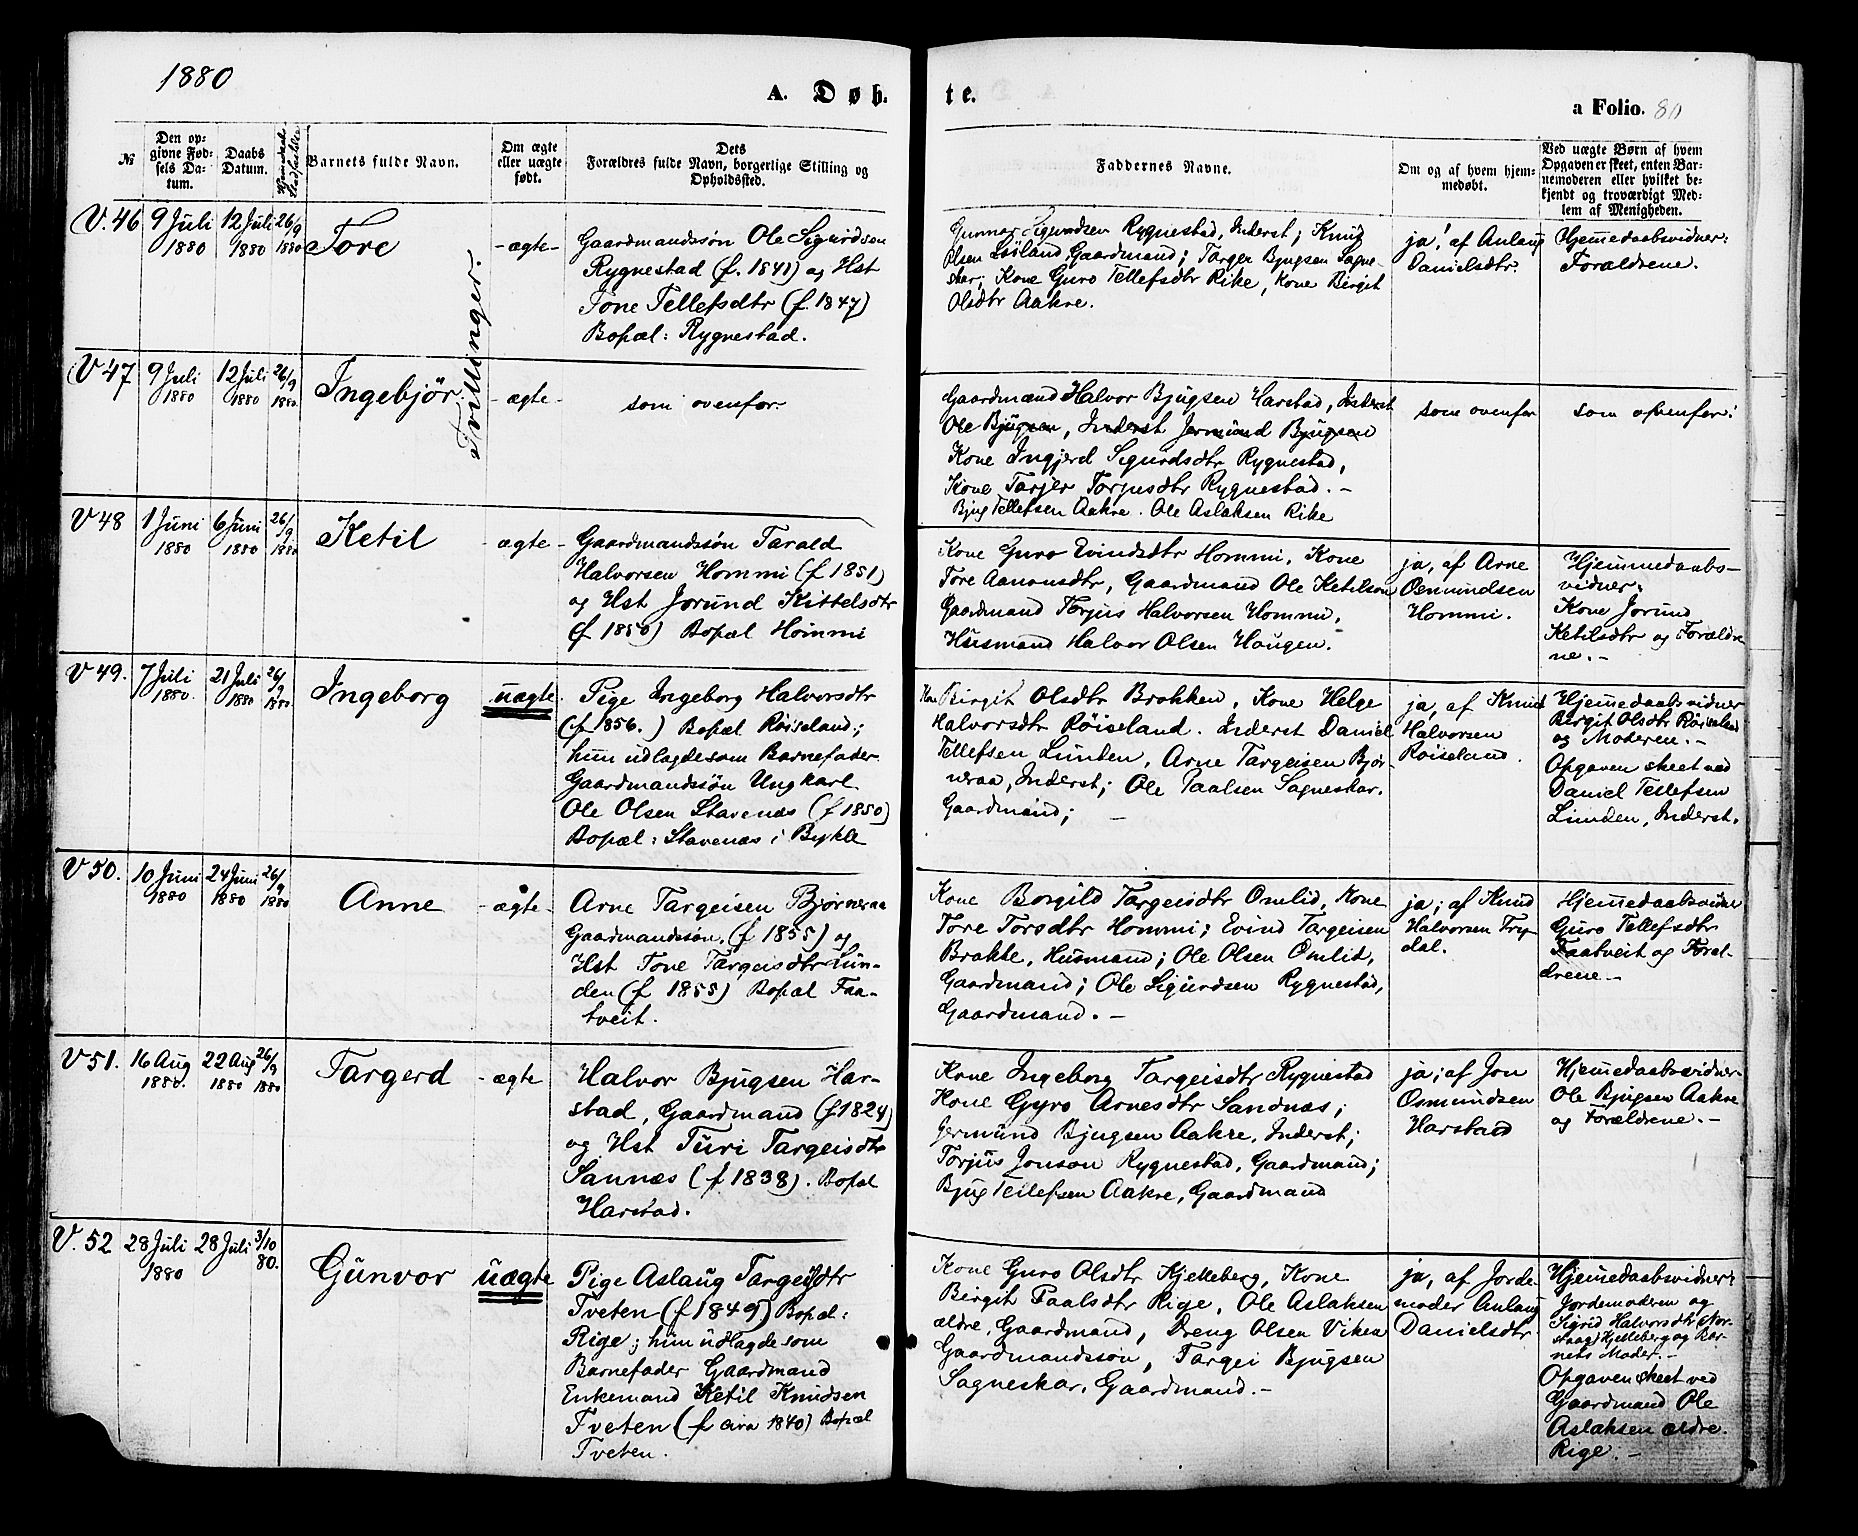 1880
A. Døb.
te.
a Folio. 80
№
Den op-
givne Fød-
sels Da-
tum.
Daabs
Datum.
Barnets fulde Navn.
Om ægte
eller uægte
født.
Dets
Forældres fulde Navn, borgerlige Stilling og
Opholdssted.
Faddernes Navne.
Om og af hvem hjem-
medøbt.
Ved uægte Børn af hvem
Opgaven er skeet, enten Bar-
nemoderen eller hvilket be-
kjendt og troværdigt Med-
lem af Menigheden.
V. 46
9 Juli
1880
12 Juli
1880
26/9
1880
Tore
Tvillinger.
- ægte -
Gaardmandssøn Ole Sigurdsen
Rygnestad (f. 1841) og Hst
Tone Tellefsdtr (f. 1847)
Bopæl: Rygnestad.
Gunnar Sigurdsen Rygnestad, Inderst; Knud
Olsen Løiland Gaardmand; Targer Bjugsen Sagne-
skar; Kone Guro Tellefsdtr Rike, Kone Birgit
Olsdtr Aakre.
ja! af Anlaug
Danielsdtr.
Hjemedaabsvidner:
Forældrene.
V 47
9 Juli
1880
12 Juli
1880
26/9
1880
Ingebjør.
- ægte -
som ovenfor.
Gaardmænd Halvor Bjugsen Harstad, Inderst
Ole Bjugsen, Inderst Jermund Bjugsen
Kone Ingjerd Sigurdsdtr Rygnestad,
Kone Tarjer Torjusdtr Rygnestad. -
Bjug Tellefsen Aakre. Ole Aslaksen Rike
som ovenfor
som ovenfor!
V 48
1 Juni
1880
6 Juni
1880
26/9
1880
Ketil
- ægte -
Gaardmandssøn Tarald
Halvorsen Hommi (f 1851)
og Hst Jorund Kittelsdtr
(f 1850) Bopæl Hommi
Kone Guro Evindsdtr Hommi, Kone
Tore Aanonsdtr, Gaardmand Ole Ketilson
Gaardmand Torjus Halvorsen Hommi,
Husmand Halvor Olsen Haugen.
ja, af Arne
Osmundsen
Hommi.
Hjemmedaabs-
vidner:
Kone Jorund
Ketilsdtr og Forældre
ne. -
V 49.
7 Juli
1880.
21 Juli
1880
26/9
1880
Ingeborg
uægte.
Pige Ingeborg Halvorsdtr
(f 1856.) Bopæl Røiseland;
hun udlagde som Barnefader
Gaardmandssøn Ungkarl
Ole Olsen Stavenæs (f 1850)
Bopæl: Stavenæs i Bykle
Kone Birgit Olsdtr Brokken, Kone Helge
Halvorsdtr Røiseland. Inderst Daniel
Tellefsen Lunden, Arne Targeisen Bjør-
neraa, Inderst; Ole Paalsen Sagneskar.
Gaardmand; -
ja, af Knud
Halvorsen
Røiseland.
Hjemedaabsvidner
Birgit Olsdtr Røiseland
og Moderen. -
Opgaven skeet ved
Daniel Tellefsen
Lunden, Inderst.
V 50.
10 Juni
1880
24 Juni
1880
26/9
1880
Anne
- ægte -
Arne Targeisen Bjørneraa
Gaardmandssøn. (f 1855) og
Hst Tone Targeisdtr Lun-
den (f 1855) Bopæl Faa-
tveit.
Kone Borgild Targeisdtr Omlid, Kone
Tore Torsdtr Hommi; Evind Targeisen
Brokke, Husmand; Ole Olsen Omlid,
Gaardmand; Ole Sigurdsen Rygnestad,
Gaardmand. -
ja; af Knud
Halvorsen Try-
dal.
Hjemedaabsvidner
Guro Tellefsdtr
Faatveit og Foræl-
drene. -
V 51.
16 Aug
1880.
22 Aug
1880
26/9
1880
Targerd
- ægte
Halvor Bjugsen Har-
stad, Gaardmand (f 1824)
og Hst Turi Targeisdtr
Sannæs (f 1838). Bopæl
Harstad.
Kone Ingeborg Targeisdtr Rygnestad
Kone Gyro Arnesdtr Sandnæs;
Jermund Bjugsen Aakre, Inderst;
Torjus Jonson Rygnestad, Gaardmand;
Bjug Tellefsen Aakre, Gaardmand
ja; af Jon
Osmundsen
Harstad
Hjemedaabsvidner
Ole Bjugsen Aakre
og Forældrene. -
V. 52
28 Juli
1880
28 Juli
3/10
80.
Gunvor
uægte
Pige Aslaug Targeisdtr
Tveten (f 1849) Bopæl:
Rige; hun udlagde som
Barnefader Gaardmand
Enkemand Ketil Knudsen
Tveten (f circa 1840) Bopæl
Tveten.
Kone Guro Olsdtr Kjelleberg, Kone
Birgit Paalsdtr Rige, Ole Aslaksen
ældre, Gaardmand, Dreng Olsen Viken
Gaardmandssøn, Targei Bjugsen
Sagneskar, Gaardmand. -
ja, af Jorde-
moder Anlaug
Danielsdtr
Hjemedaabsvidner:
Jordemoderen og
Sigrid Halvorsdtr
Kjelleberg og Bar-
nets Moder. -
Opgaven skeet ved
Gaardmand Ole
Aslaksen ældre.
Rige. -